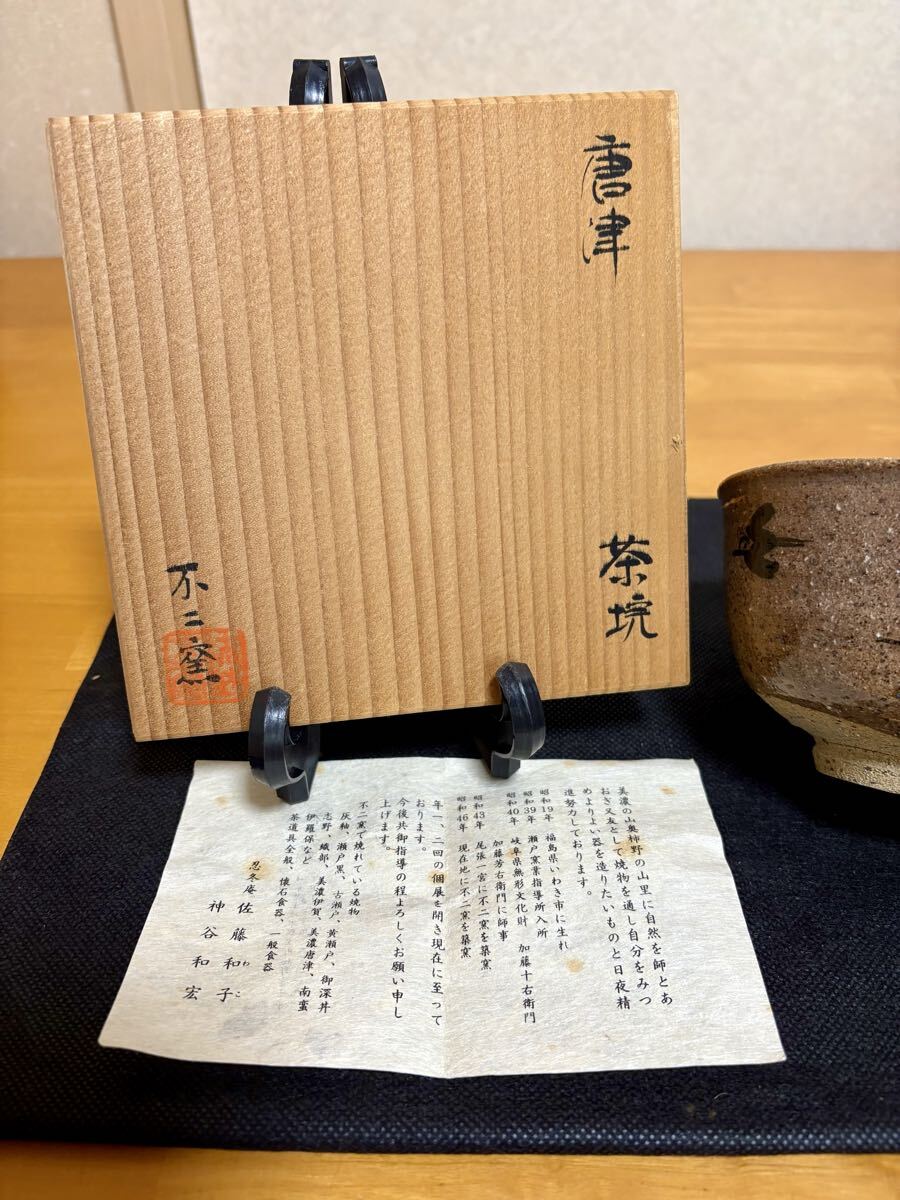 唐津
茶埦
不二窯
美濃の山奥柿野の山里に自然を師とあ
おぎ又友として焼物を通し自分をみつ
めよりよい器を造りたいものと日夜精
進努力しております。
昭和19年 福島県いわき市に生れ
昭和39年 瀬戸窯業指導所入所
昭和40年 岐阜県無形文化財 加藤十右衛門
加藤芳右衛門に師事
昭和43年 尾張一宮に不二窯を築窯
昭和46年 現在地に不二窯を築窯
年一、二回の個展を開き現在に至って
おります。
今後共御指導の程よろしくお願い申し
上げます。
不二窯で焼れている焼物
灰釉、瀬戸黒、古瀬戸、黄瀬戸、御深井
志野、織部、美濃伊賀、美濃唐津、南蛮
伊羅保など
茶道具全般、懐石食器、一般食器
忍冬庵 佐藤和子
わこ
神谷和宏